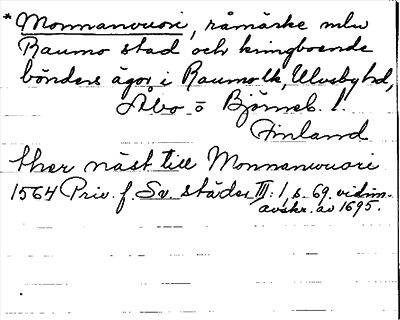 * Monnanvuori, råmärke mlu
Raumo stad och kringboende
bönders ägor i Raumo lk, Ulvsby hd,
Åbo o Björneb. l.
Finland
ther näst till Monnanwuari
1564 Priv. f. Sv. städer III: 1, s. 69. vidim.
avskr. av 1695.